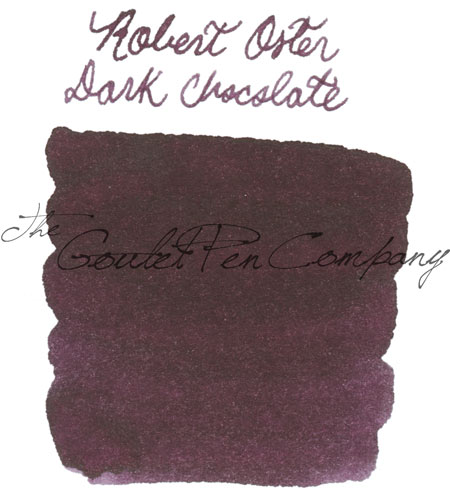 Robert Oster
Dark Chocolate
The
Goulet Pen Company